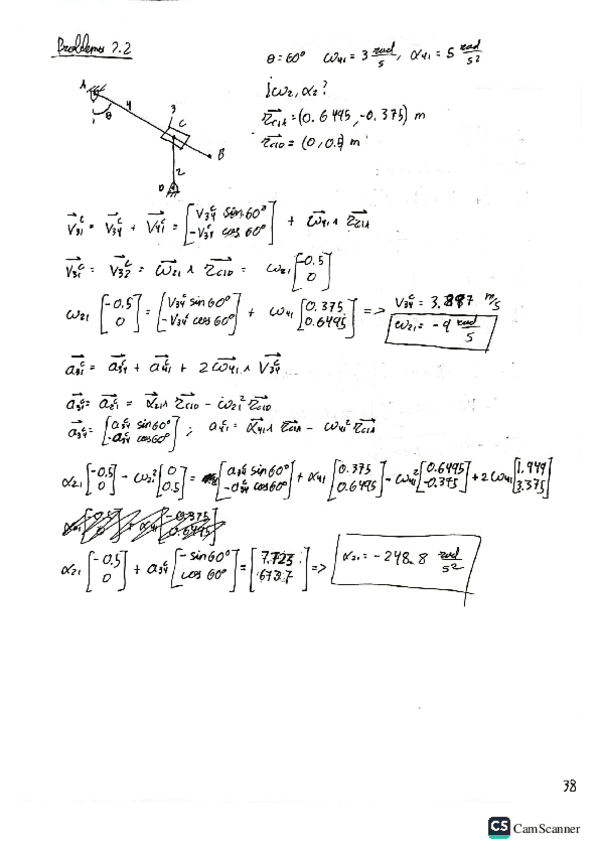 Problema 7.2
θ=60° ω₄₁=3 rad/s, α₄₁=5 rad/s²
¿ω₂, α₂?
r_C1A=(0.6495,-0.375) m
r_C1O=(0,0.5) m
A
4
θ
1
3
C
B
2
O
V₃₁ᶜ= V₃₄ᶜ + V₄₁ᶜ = [V₃₄ᶜ sin60° ; -V₃₄ᶜ cos 60°] + ω₄₁ ∧ r_C1A
V₃₁ᶜ = V₃₂ᶜ = ω₂₁ ∧ r_C1O = ω₂₁ [-0.5 ; 0]
ω₂₁ [-0.5 ; 0] = [V₃₄ᶜ sin60° ; -V₃₄ᶜ cos60°] + ω₄₁ [0.375 ; 0.6495] => V₃₄ᶜ = 3.897 m/s
ω₂₁= -9 rad/s
a₃₁ᶜ = a₃₄ᶜ + a₄₁ᶜ + 2 ω₄₁ ∧ V₃₄ᶜ
a₃₁ᶜ= a₂₁ᶜ = α₂₁ ∧ r_C1O - ω₂₁² r_C1O
a₃₄ᶜ= [a₃₄ᶜ sin60° ; -a₃₄ᶜ cos60°] ; a₄₁ᶜ= α₄₁ ∧ r_C1A - ω₄₁² r_C1A
α₂₁ [-0.5 ; 0] - ω₂₁² [0 ; 0.5] = [a₃₄ sin60° ; -a₃₄ᶜ cos60°] + α₄₁ [0.375 ; 0.6495] - ω₄₁² [0.6495 ; -0.375] + 2ω₄₁ [1.949 ; 3.375]
α₂₁ [-0.5 ; 0] + a₃₄ᶜ [-sin60° ; cos 60°] = [7.723 ; 67.37] => α₂₁ = -248.8 rad/s²
38
CS CamScanner